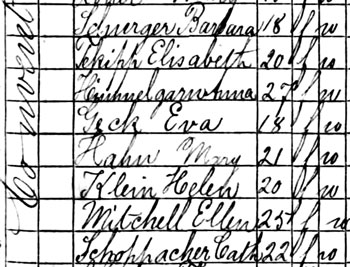 Convent
Scherger Barbara 18 f w
Skipp Elisabeth 20 f w
Himmelgarn Anna 27 f w
Geck Eva 18 f w
Hahn Mary 21 f w
Klein Helen 20 f w
Mitchell Ellen 25 f w
Schoppacher Cath 22 f w